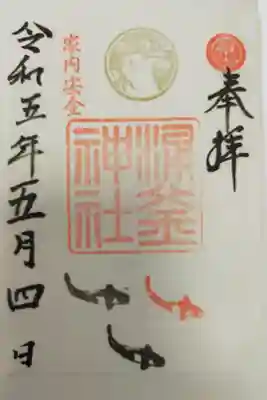 奉拝
釜
神社
家内安全
令和五年五月四日